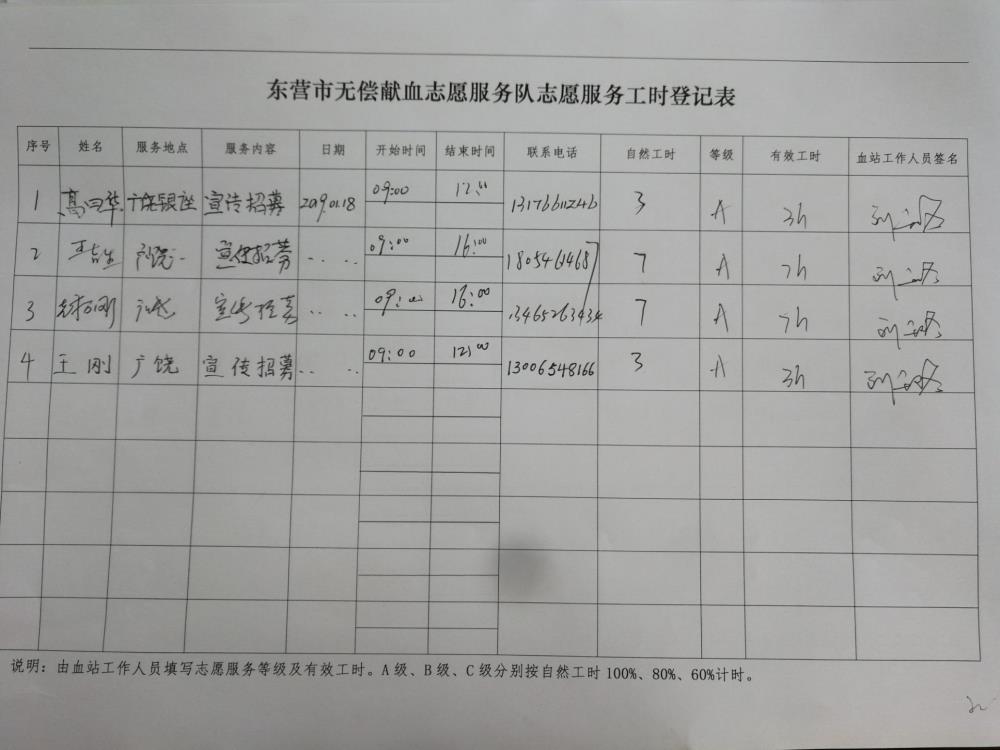 东营市无偿献血志愿服务队志愿服务工时登记表
序号 姓名 服务地点 服务内容 日期 开始时间 结束时间 联系电话 自然工时 等级 有效工时 血站工作人员签名
1 广饶银座 宣传招募 2019.01.18 09:00 12:00 13176611246 3 A 3h
2 宣传招募 .. .. 09:00 16:00 18054614687 7 A 7h
3 宣传招募 .. .. 09:00 16:00 13465263434 7 A 7h
4 王刚 广饶 宣传招募 .. .. 09:00 12:00 13006548166 3 A 3h
说明：由血站工作人员填写志愿服务等级及有效工时。A级、B级、C级分别按自然工时100%、80%、60%计时。